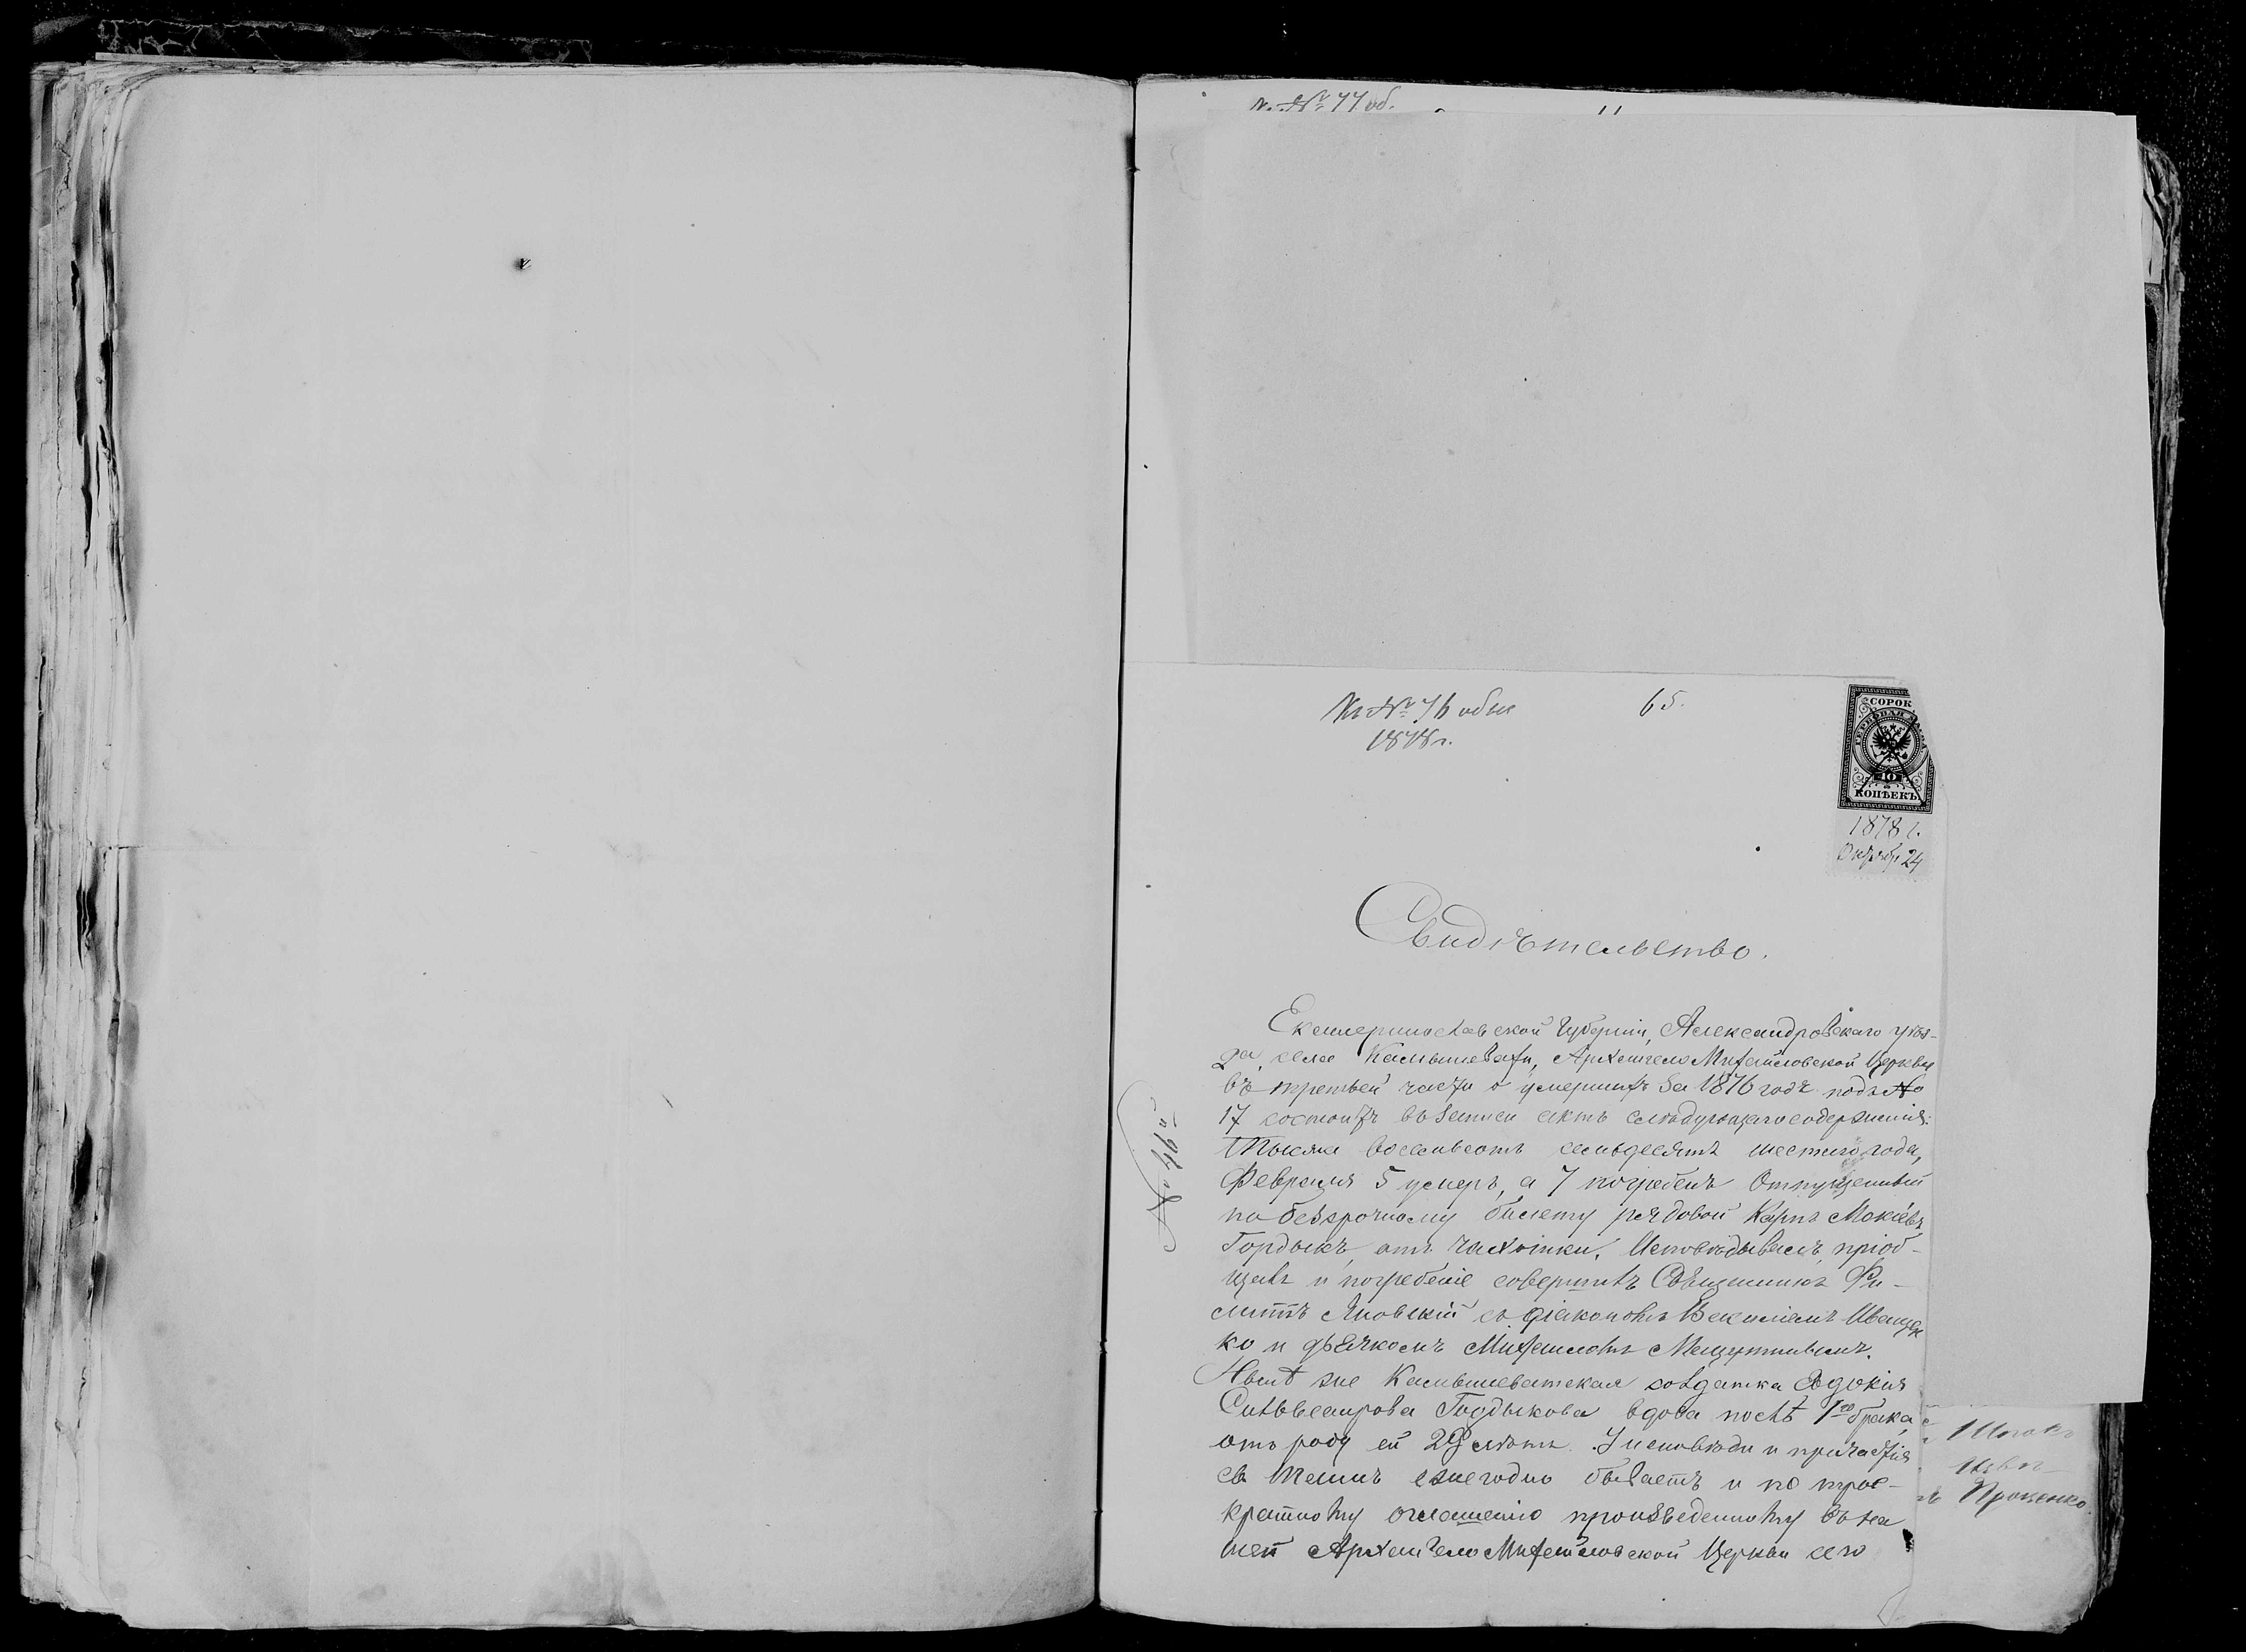 № 77 об.
№ 76 обыс 65.
1878 г.
СОРОК
ГЕРБОВАЯ МАРКА
40
КОПѢЕКЪ
1878 г.
Октября 24
Свидѣтельство.
Екатеринославской Губерніи, Александровскаго уѣз-
да, села Камышевахи, Архангело Михайловской Церкви
въ третьей части о умершихъ за 1876 годъ подъ №
17 состоитъ въ записи актъ слѣдующаго содержанія:
Тысяча восемьсотъ семьдесятъ шестаго года,
Февраля 5 умеръ, а 7 погребенъ Отпущенный
по безсрочному билету рядовой Карпъ Мокіевъ
Гордыкъ, отъ чахотки. Исповѣдывалъ, пріоб-
щалъ и погребеніе совершилъ Священникъ Фи-
липпъ Яновскій съ діакономъ Іванщен
ко и дьячкомъ Михаиломъ
Нынѣ же Камышеватская солдатка Евдокія
Сильвестрова Гордыкова вдова послѣ 1го брака,
отъ роду ей 29 лѣтъ. У исповѣди и причастія
св Таинъ ежегодно бываетъ и по трое-
кратному оглашенію произведенному въ на
шей Архангело Михайловской Церкви сего
Проценко